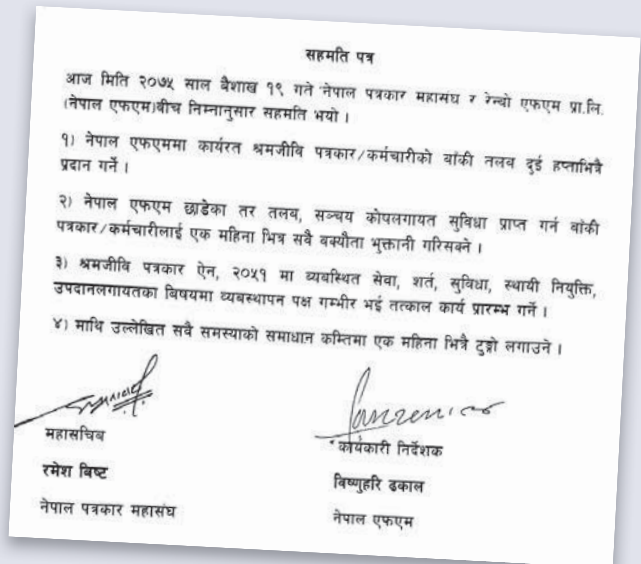 सहमति पत्र
आज मिति २०७५ साल बैशाख १९ गते नेपाल पत्रकार महासंघ र रेन्वो एफएम प्रा.लि.
(नेपाल एफएम)बीच निम्नानुसार सहमति भयो ।
१) नेपाल एफएममा कार्यरत श्रमजीवि पत्रकार/कर्मचारीको बाँकी तलब दुई हप्ताभित्रै
प्रदान गर्ने ।
२) नेपाल एफएम छाडेका तर तलब, सञ्चय कोपलगायत सुविधा प्राप्त गर्न बाँकी
पत्रकार/कर्मचारीलाई एक महिना भित्र सवै बक्यौता भुक्तानी गरिसक्ने ।
३) श्रमजीवि पत्रकार ऐन, २०५१ मा व्यबस्थित सेवा, शर्त, सुविधा, स्थायी नियुक्ति,
उपदानलगायतका बिषयमा व्यबस्थापन पक्ष गम्भीर भई तत्काल कार्य प्रारम्भ गर्ने ।
४) माथि उल्लेखित सवै समस्याको समाधान कम्तिमा एक महिना भित्रै टुङ्गो लगाउने ।
महासचिब
रमेश बिष्ट
नेपाल पत्रकार महासंघ
कार्यकारी निर्देशक
विष्णुहरि ढकाल
नेपाल एफएम